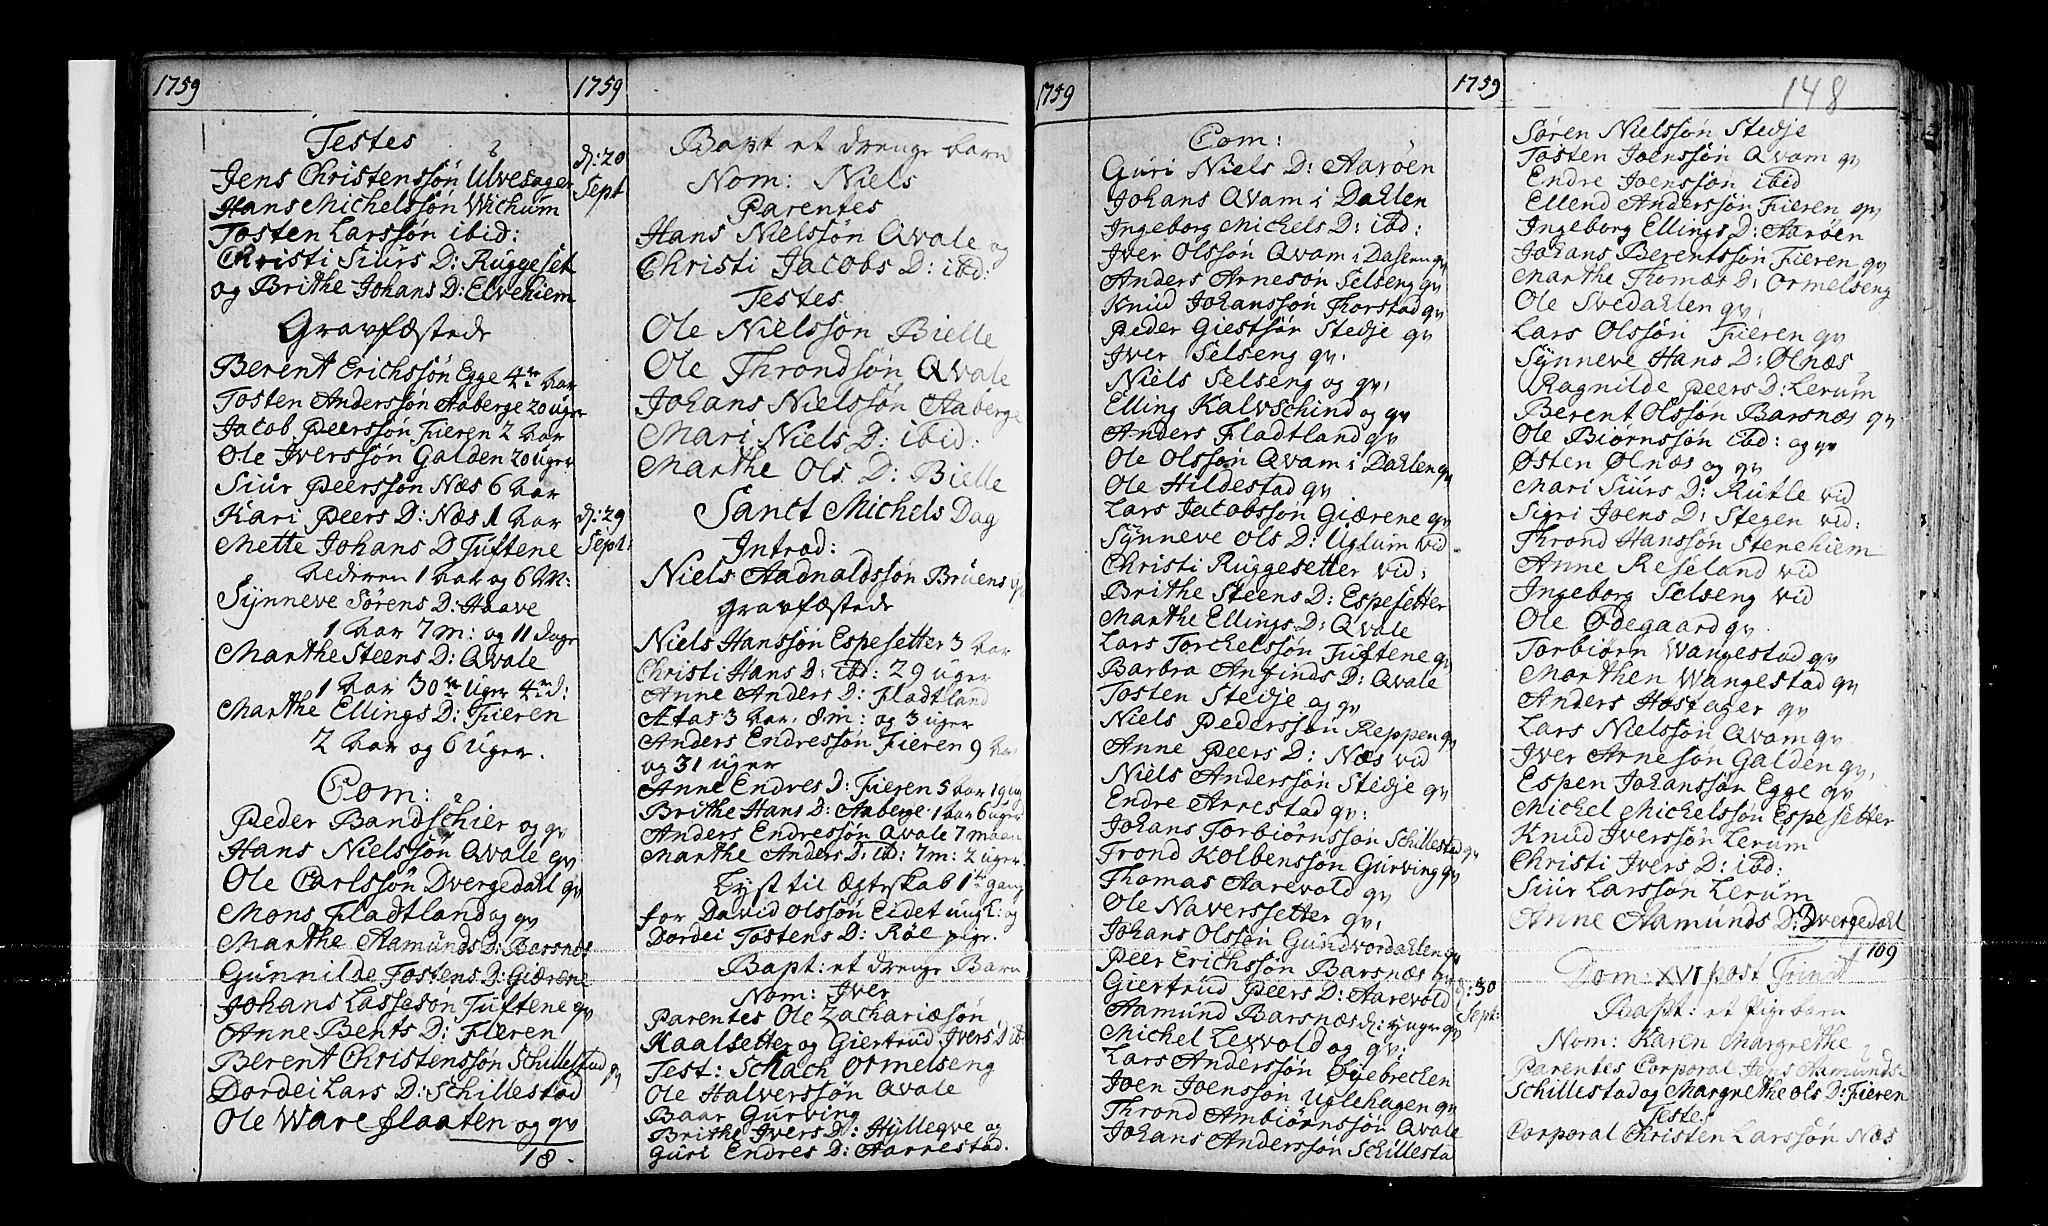 1759
Testes
Jens Christenssøn Ulvesager
Hans Michelssøn Wichum
Tosten Larssøn ibid:
Christi Siurs D: Ruggeset
og Brithe Johans D: Elvehiem
Gravfæstede
Berent Erichssøn Egge 4re aar
Tosten Anderssøn Aaberge 20 uger
Jacob Peerssøn Fieren 2 aar
Ole Iverssøn Galden 20 uger
Siur Peerssøn Næs 6 aar
Kari Peers D: Næs 1 aar
Mette Johans D Tuftene
1 aar og 6 M:
Synneve Sørens D: Haave
1 aar 7 m: og 11 dage
Marthe Steens D: Qvale
1 aar 30 uger 4 d:
Marthe Ellings D: Fieren
2 aar og 6 uger.
Com:
Peder Bandschier og qv
Hans Nielssøn Qvale qv
Ole Carlssøn Dvergedahl qv
Mons Fladtland og qv
Marthe Aamunds D: Barsnæs
Gunnilde Tostens D: Giærene
Johans Lassesøn Tuftene qv
Anne Bents D: Fieren
Berent Christenssøn Schillestad qv
Dordei Lars D: Schillestad
Ole Wareflaaten og qv
18.
1759
d: 20
Sept
Bapt et drenge barn
Nom: Niels
Parentes
Hans Nielssøn Qvale og
Christi Jacobs D: ibd:
Testes
Ole Nielssøn Bielle
Ole Throndsøn Qvale
Johans Nielssøn Aaberge
Mari Niels D: ibid:
Marthe Ols D: Bielle
d: 29
Sept:
Sanct Michels Dag
Introd:
Niels Aadnaldssøn Bruens qv
gravfæstede
Niels Hanssøn Espesetter 3 aar
Christi Hans D: ibd: 29 uger
Anne Anders D: Fladtland
Ætas 3 aar. 8 m: og 3 uger
Anders Endressøn Fieren 9 aar
og 31 uger
Anne Endres D: Fieren 5 aar 19 ug
Brithe Hans D: Aaberge 1 aar 6 uger
Anders Endressøn Qvale 7 maan
Marthe Anders D: ibd: 7 m: 2 uger.
Lyst til ægteskab 1te gang
for David Olssøn Eidet ungk: og
Dordei Tostens D: Røe pige.
Bapt: et drenge Barn
Nom: Iver
Parentes Ole Zachariæsøn
Haalsetter og Giertrud Ivers D ibd
Test: Schach Ormelseng
Ole Halverssøn Qvale
Baar Gurving
Brithe Ivers D: Hyllegve og
Guri Endres D: Aarrestad.
1759
Com:
Guri Niels D: Aarøen
Johans Qvam i Dahlen
Ingeborg Michels D: ibd:
Iver Olssøn Qvam i Dalen qv
Anders Arnesøn Selseng qv
Knud Johanssøn Thorstad qv
Peder Giestsør Stedje qv
Iver Selseng qv.
Niels Selseng og qv.
Elling Kalvschind og qv
Anders Fladtland qv
Ole Olssøn Qvam i Dahlen qv
Ole Hildestad qv
Lars Jacobssøn Giærene qv
Synneve Ols D: Uglum vid
Christi Ruggesetter vid:
Brithe Steens D: Espesetter
Marthe Ellings D: Qvale
Lars Torchelssøn Tuftene qv
Barbra Anfinds D: Qvale
Tosten Stedje og qv
Niels Pederssøn Reppen qv
Anne Peers D: Næs vid
Niels Anderssøn Stedje qv
Endre Arrestad qv:
Johans Torbiørnssøn Schillestad qv
Trond Kolbenssøn Gurving qv
Thomas Aarevold qv
Ole Naverssetter qv.
Johans Olssøn Gundvordahlen qv
Peer Erichssøn Barsnæs qv
Giertrud Peers D: Aarevold
Aamund Barsnæs d: ynger qv
Michel Levvold og qv:
Lars Anderssøn Øyebrechen
Joen Joenssøn Uglehagen qv
Thrond Ambiørnssøn Qvale
Johans Anderssøn Schillesta
1759
148
Søren Nielssøn Stedje
Tosten Joenssøn Qvam qv
Endre Joenssøn ibid
Ellend Anderssøn Fieren qv
Ingeborg Ellings D: Aarøen
Johans Berentssøn Fieren qv
Marthe Thomæs D: Ormelseng
Ole Svedahlen qv.
Lars Olssøn Fieren qv
Synneve Hans D: Ølnæs
Ragnilde Peers D: Lerum
Berent Olssøn Barsnæs qv
Ole Biørnssøn ibd: og qv
Østen Ølnæs og qv
Mari Siurs D: Rutle vid
Sigri Joens D: Stegen vid:
Thrond Hanssøn Stenehiem
Anne Reseland vid
Ingeborg Selseng vid
Ole Ødegaard qv
Torbiørn Wangestad qv
Marthen Wangestad qv
Anders Høstager qv
Lars Nielssøn Qvam qv
Iver Arnesøn Galden qv.
Espen Johanssøn Egge qv
Michel Michelssøn Espesetter
Knud Iverssøn Lerum
Christi Ivers D: ibd:
Siur Larssøn Lerum
Anne Aamunds D: Dvergedahl
109
d: 30
Sept:
Dom: XVI post Trinit
Bapt: et Pige barn
Nom: Karen Margrethe
Parentes Corporal Jens Aamundsø
Schillestad og Margrethe Ols D: Fieren
Testes
Corporal Christen Larssøn Næs